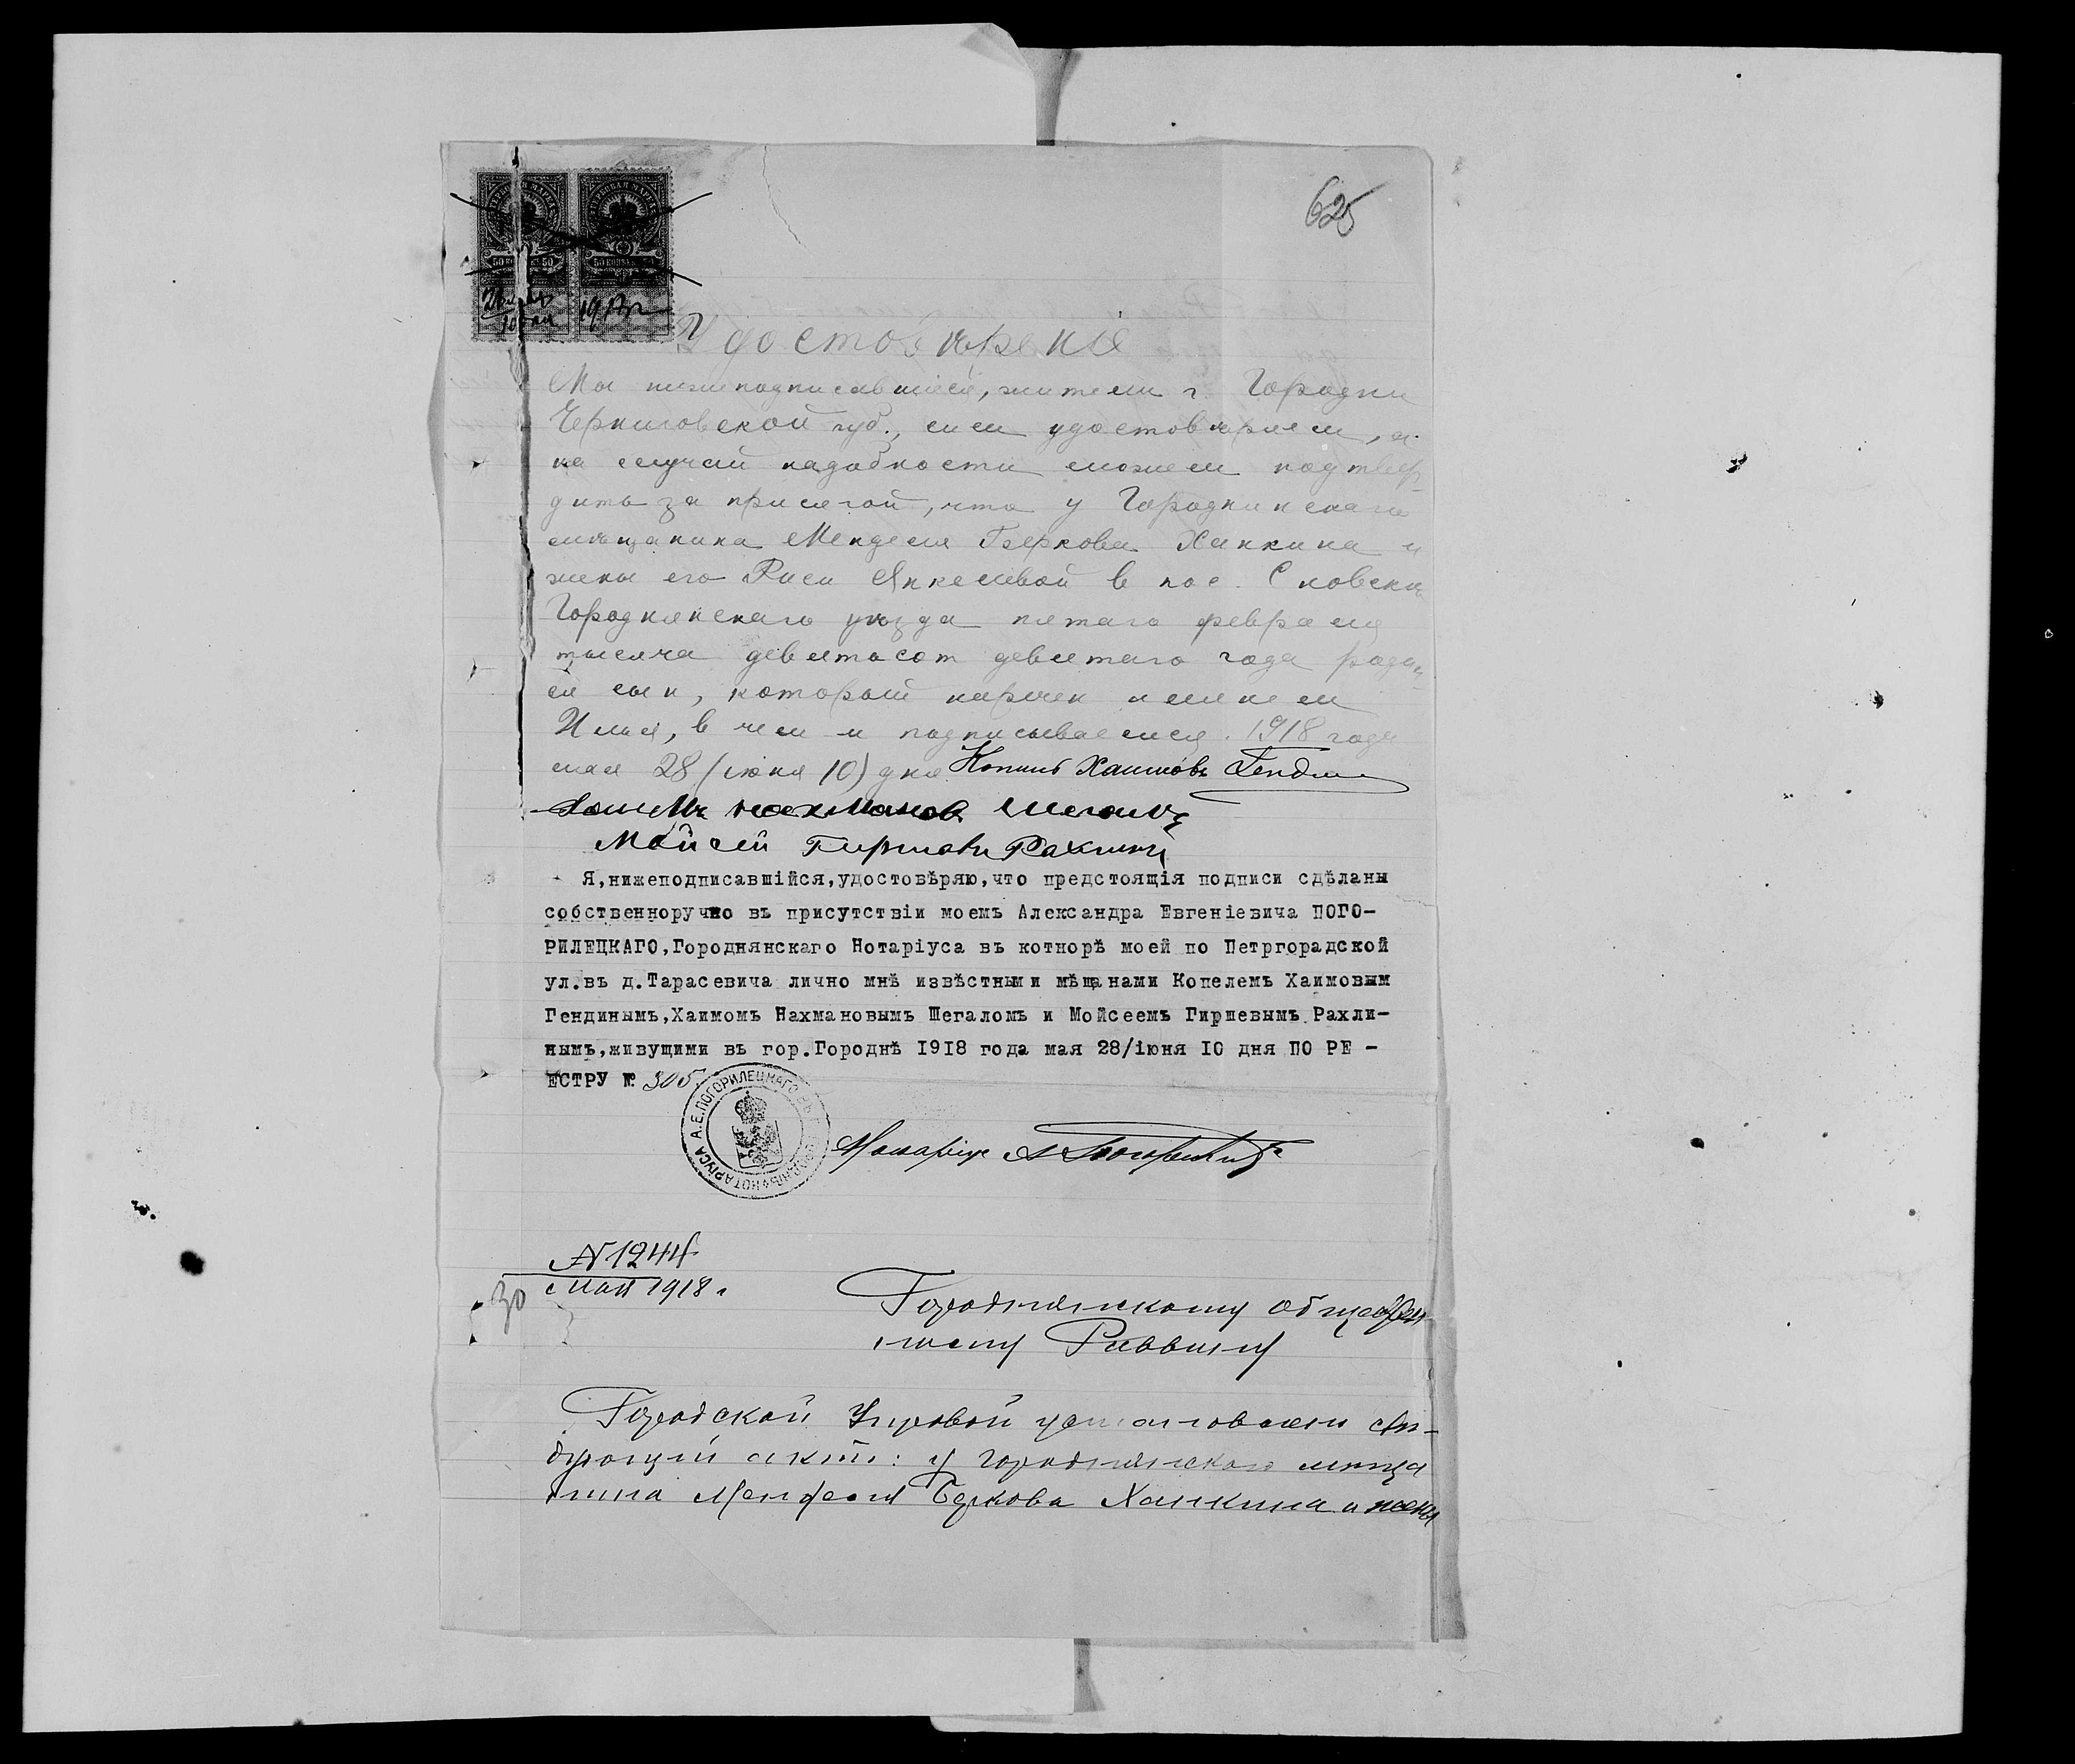 625
ГЕРБОВАЯ МАРКА
ГЕРБОВАЯ МАРКА
50 КОП. 50
50 КОПѢЕКЪ 50
Удостовѣреніе
Мы нижеподписавшіеся, жители г. Городни
Черниговской губ., сим удостовѣряем, а
на случай надобности можем подтвер-
дить за присягой, что у Городнянскаго
мѣщанина Менделя Беркова Ханкина и
жены его Раси Янкелевой в пос. Сновскѣ
Городнянскаго уѣзда пятаго февраля
тысяча девятьсот девятаго года родил-
ся сын, который наречен именем
Илья, в чем и подписываемся. 1918 года
мая 28 (іюня 10) дня Копель Хаимовъ Гендин
Хаимъ Нахманов Шегалъ
Мойсей Гиршевъ Рахлинъ
Я,нижеподписавшійся,удостовѣряю,что предстоящія подписи сдѣланы
собственноручно въ присутствіи моемъ Александра Евгеніевича ПОГО-
РИЛЕЦКАГО,Городнянскаго Нотаріуса въ котнорѣ моей по Петргорадской
ул.въ д.Тарасевича лично мнѣ извѣстными мѣщанами Копелемъ Хаимовым
Гендинымъ,Хаимомъ Нахмановымъ Шегаломъ и Мойсеемъ Гиршевымъ Рахли-
нымъ,живущими въ гор.Городнѣ 1918 года мая 28/іюня 10 дня ПО РЕ -
ЕСТРУ № 305
НОТАРІУСА А.Е.ПОГОРИЛЕЦКАГО
Нотаріус А Погорилецкій
N 1244
30 мая 1918 г
Городнянскому обществен-
ному Раввину
Городской Управой установлен слѣ-
дующій актъ: у городнянскаго мѣща
нина Менделя Беркова Ханкина и жены